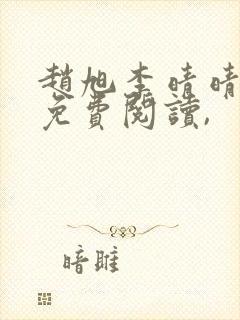 趙旭李晴晴
免費閱讀,
暗雎